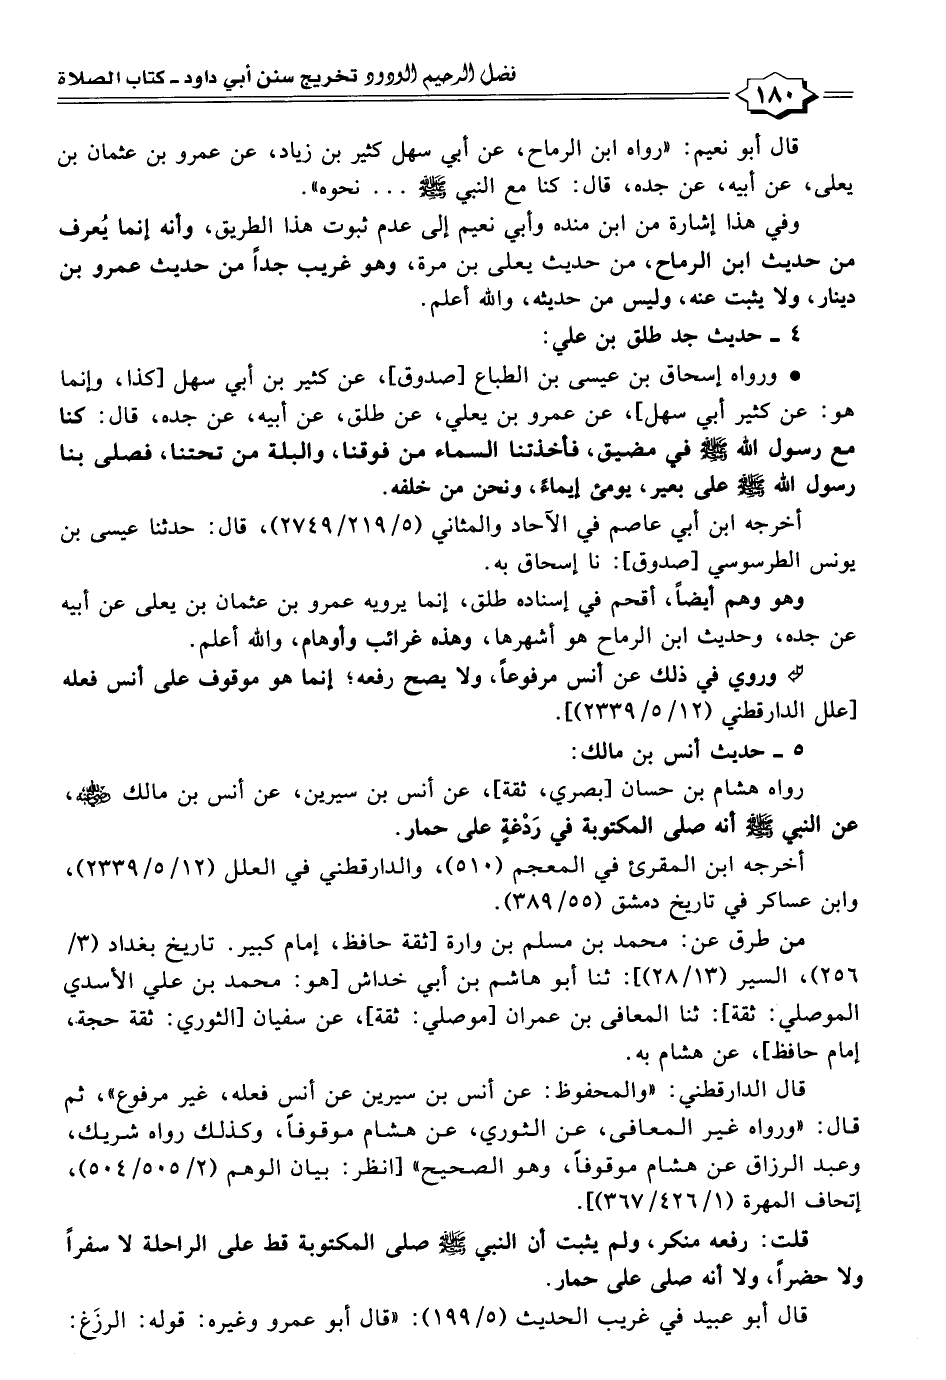 فضل الرحيم الودود تخريج سنن أبي داود ـ كتاب الصلاة
١٨٠
قال أبو نعيم: «رواه ابن الرماح، عن أبي سهل كثير بن زياد، عن عمرو بن عثمان بن
يعلى، عن أبيه، عن جده، قال: كنا مع النبي ﷺ ... نحوه».
وفي هذا إشارة من ابن منده وأبي نعيم إلى عدم ثبوت هذا الطريق، وأنه إنما يُعرف
من حديث ابن الرماح، من حديث يعلى بن مرة، وهو غريب جداً من حديث عمرو بن
دينار، ولا يثبت عنه، وليس من حديثه، والله أعلم.
٤ ـ حديث جد طلق بن علي:
• ورواه إسحاق بن عيسى بن الطباع [صدوق]، عن كثير بن أبي سهل [كذا، وإنما
هو: عن كثير أبي سهل]، عن عمرو بن يعلي، عن طلق، عن أبيه، عن جده، قال: كنا
مع رسول الله ﷺ في مضيق، فأخذتنا السماء من فوقنا، والبلة من تحتنا، فصلى بنا
رسول الله ﷺ على بعير، يومئ إيماءً، ونحن من خلفه.
أخرجه ابن أبي عاصم في الآحاد والمثاني (٥/ ٢١٩/ ٢٧٤٩)، قال: حدثنا عيسى بن
يونس الطرسوسي [صدوق]: نا إسحاق به.
وهو وهم أيضاً، أقحم في إسناده طلق، إنما يرويه عمرو بن عثمان بن يعلى عن أبيه
عن جده، وحديث ابن الرماح هو أشهرها، وهذه غرائب وأوهام، والله أعلم.
وروي في ذلك عن أنس مرفوعاً، ولا يصح رفعه؛ إنما هو موقوف على أنس فعله
[علل الدارقطني (١٢/ ٥/ ٢٣٣٩)].
٥ ـ حديث أنس بن مالك:
رواه هشام بن حسان [بصري، ثقة]، عن أنس بن سيرين، عن أنس بن مالك رضي الله عنه،
عن النبي ﷺ أنه صلى المكتوبة في رَدْغةٍ على حمار.
أخرجه ابن المقرئ في المعجم (٥١٠)، والدارقطني في العلل (١٢/ ٥/ ٢٣٣٩)،
وابن عساكر في تاريخ دمشق (٥٥/ ٣٨٩).
من طرق عن: محمد بن مسلم بن وارة [ثقة حافظ، إمام كبير. تاريخ بغداد (٣/
٢٥٦)، السير (١٣/ ٢٨)]: ثنا أبو هاشم بن أبي خداش [هو: محمد بن علي الأسدي
الموصلي: ثقة]: ثنا المعافى بن عمران [موصلي: ثقة]، عن سفيان [الثوري: ثقة حجة،
إمام حافظ]، عن هشام به.
قال الدارقطني: «والمحفوظ: عن أنس بن سيرين عن أنس فعله، غير مرفوع»، ثم
قال: «ورواه غير المعافى، عن الثوري، عن هشام موقوفاً، وكذلك رواه شريك،
وعبد الرزاق عن هشام موقوفاً، وهو الصحيح» [انظر: بيان الوهم (٢/ ٥٠٥/ ٥٠٤)،
إتحاف المهرة (١/ ٤٢٦/ ٣٦٧)].
قلت: رفعه منكر، ولم يثبت أن النبي ﷺ صلى المكتوبة قط على الراحلة لا سفراً
ولا حضراً، ولا أنه صلى على حمار.
قال أبو عبيد في غريب الحديث (٥/ ١٩٩): «قال أبو عمرو وغيره: قوله: الرزَغ: